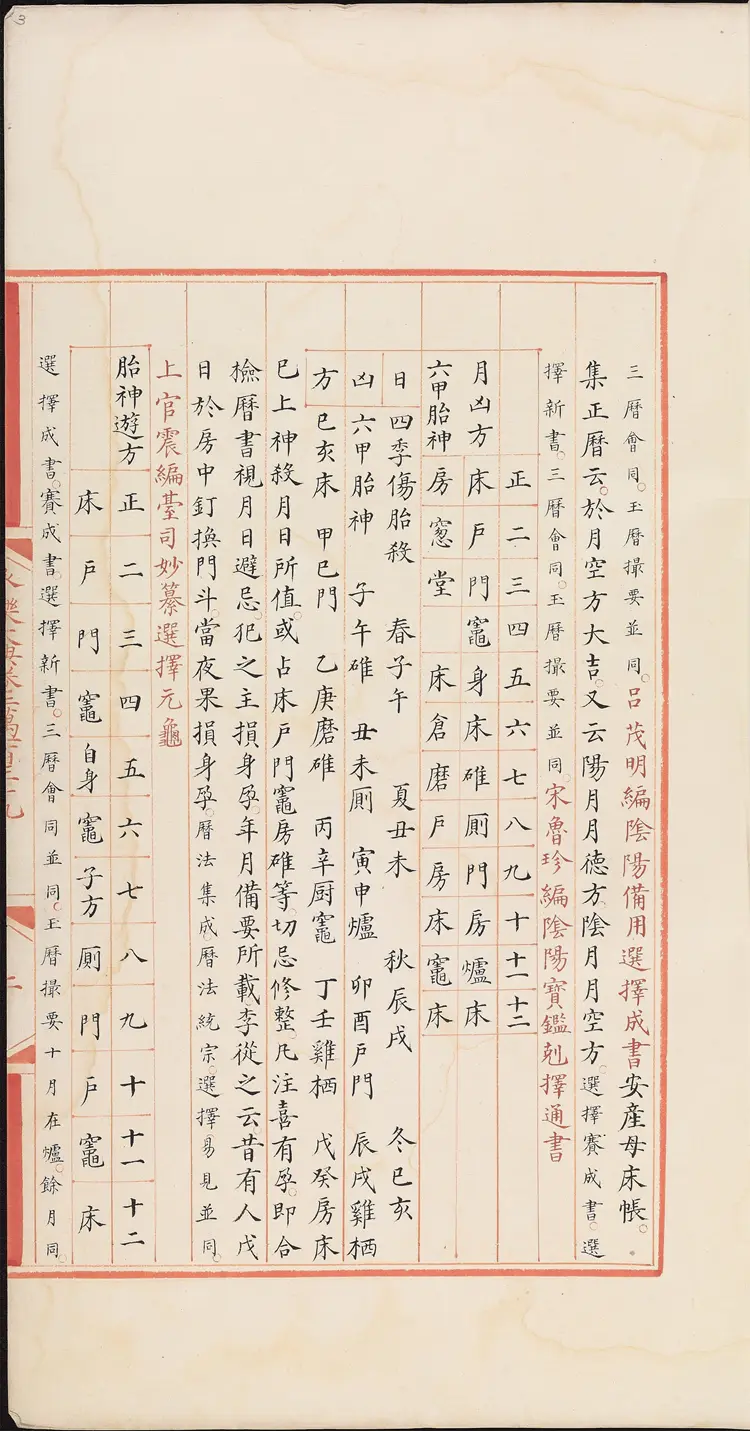 三曆會同。玉曆撮要並同。呂茂明編陰陽備用選擇成書安産母床帳。
集正曆云。於月空方大吉。又云陽月月德方。陰月月空方。選擇賽成書。選
擇新書。三曆會同。玉曆撮要並同。宋魯珍編陰陽寶鑑剋擇通書
正二三四五六七八九十十一十二
月凶方床戶門竈身床碓厠門房爐床
六甲胎神房窓堂床倉磨戶房床竈床
日四季傷胎殺春子午夏丑未秋辰戌冬巳亥
凶六甲胎神子午碓丑未厠寅申爐卯酉戶門辰戌雞栖
方巳亥床甲巳門乙庚磨碓丙辛厨竈丁壬雞栖戊癸房床
巳上神殺月日所值。或占床戶門竈房碓等。切忌修整。凡注喜有孕。即合
檢曆書視月日避忌。犯之主損身孕。年月備要所載。李從之云。昔有人戊
日於房中釘換門斗。當夜果損身孕。曆法集成。曆法統宗。選擇易見並同。
上官震編臺司妙纂選擇元龜
胎神遊方正二三四五六七八九十十一十二
床戶門竈自身竈子方厠門戶竈床
選擇成書。賽成書。選擇新書。三曆會同並同。玉曆撮要十月在爐。餘月同。
二
3